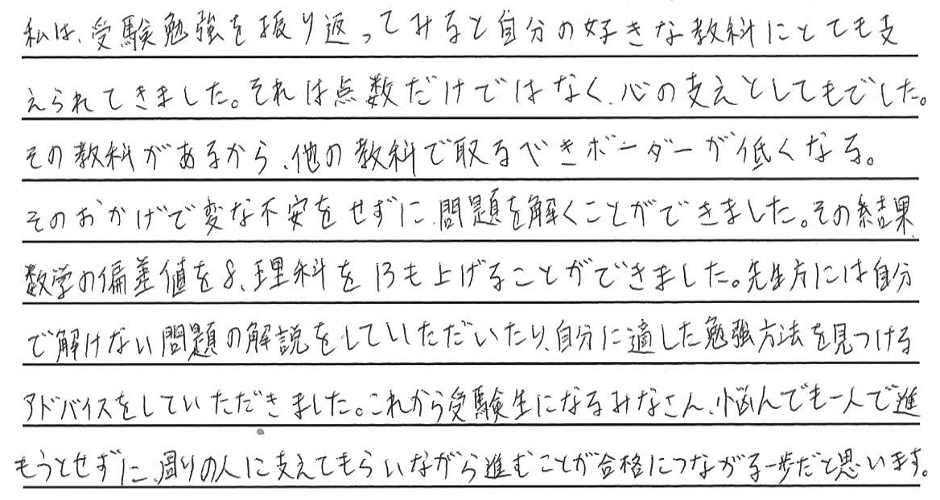 私は、受験勉強を振り返ってみると自分の好きな教科にとても支
えられてきました。それは点数だけではなく、心の支えとしてもでした。
その教科があるから、他の教科で取るべきボーダーが低くなる。
そのおかげで変な不安をせずに、問題を解くことができました。その結果、
数学の偏差値を8、理科を13も上げることができました。先生方には自分
で解けない問題の解説をしていただいたり、自分に適した勉強方法を見つける
アドバイスをしていただきました。これから受験生になるみなさん、悩んでも一人で進
もうとせずに、周りの人に支えてもらいながら進むことが合格につながる一歩だと思います。